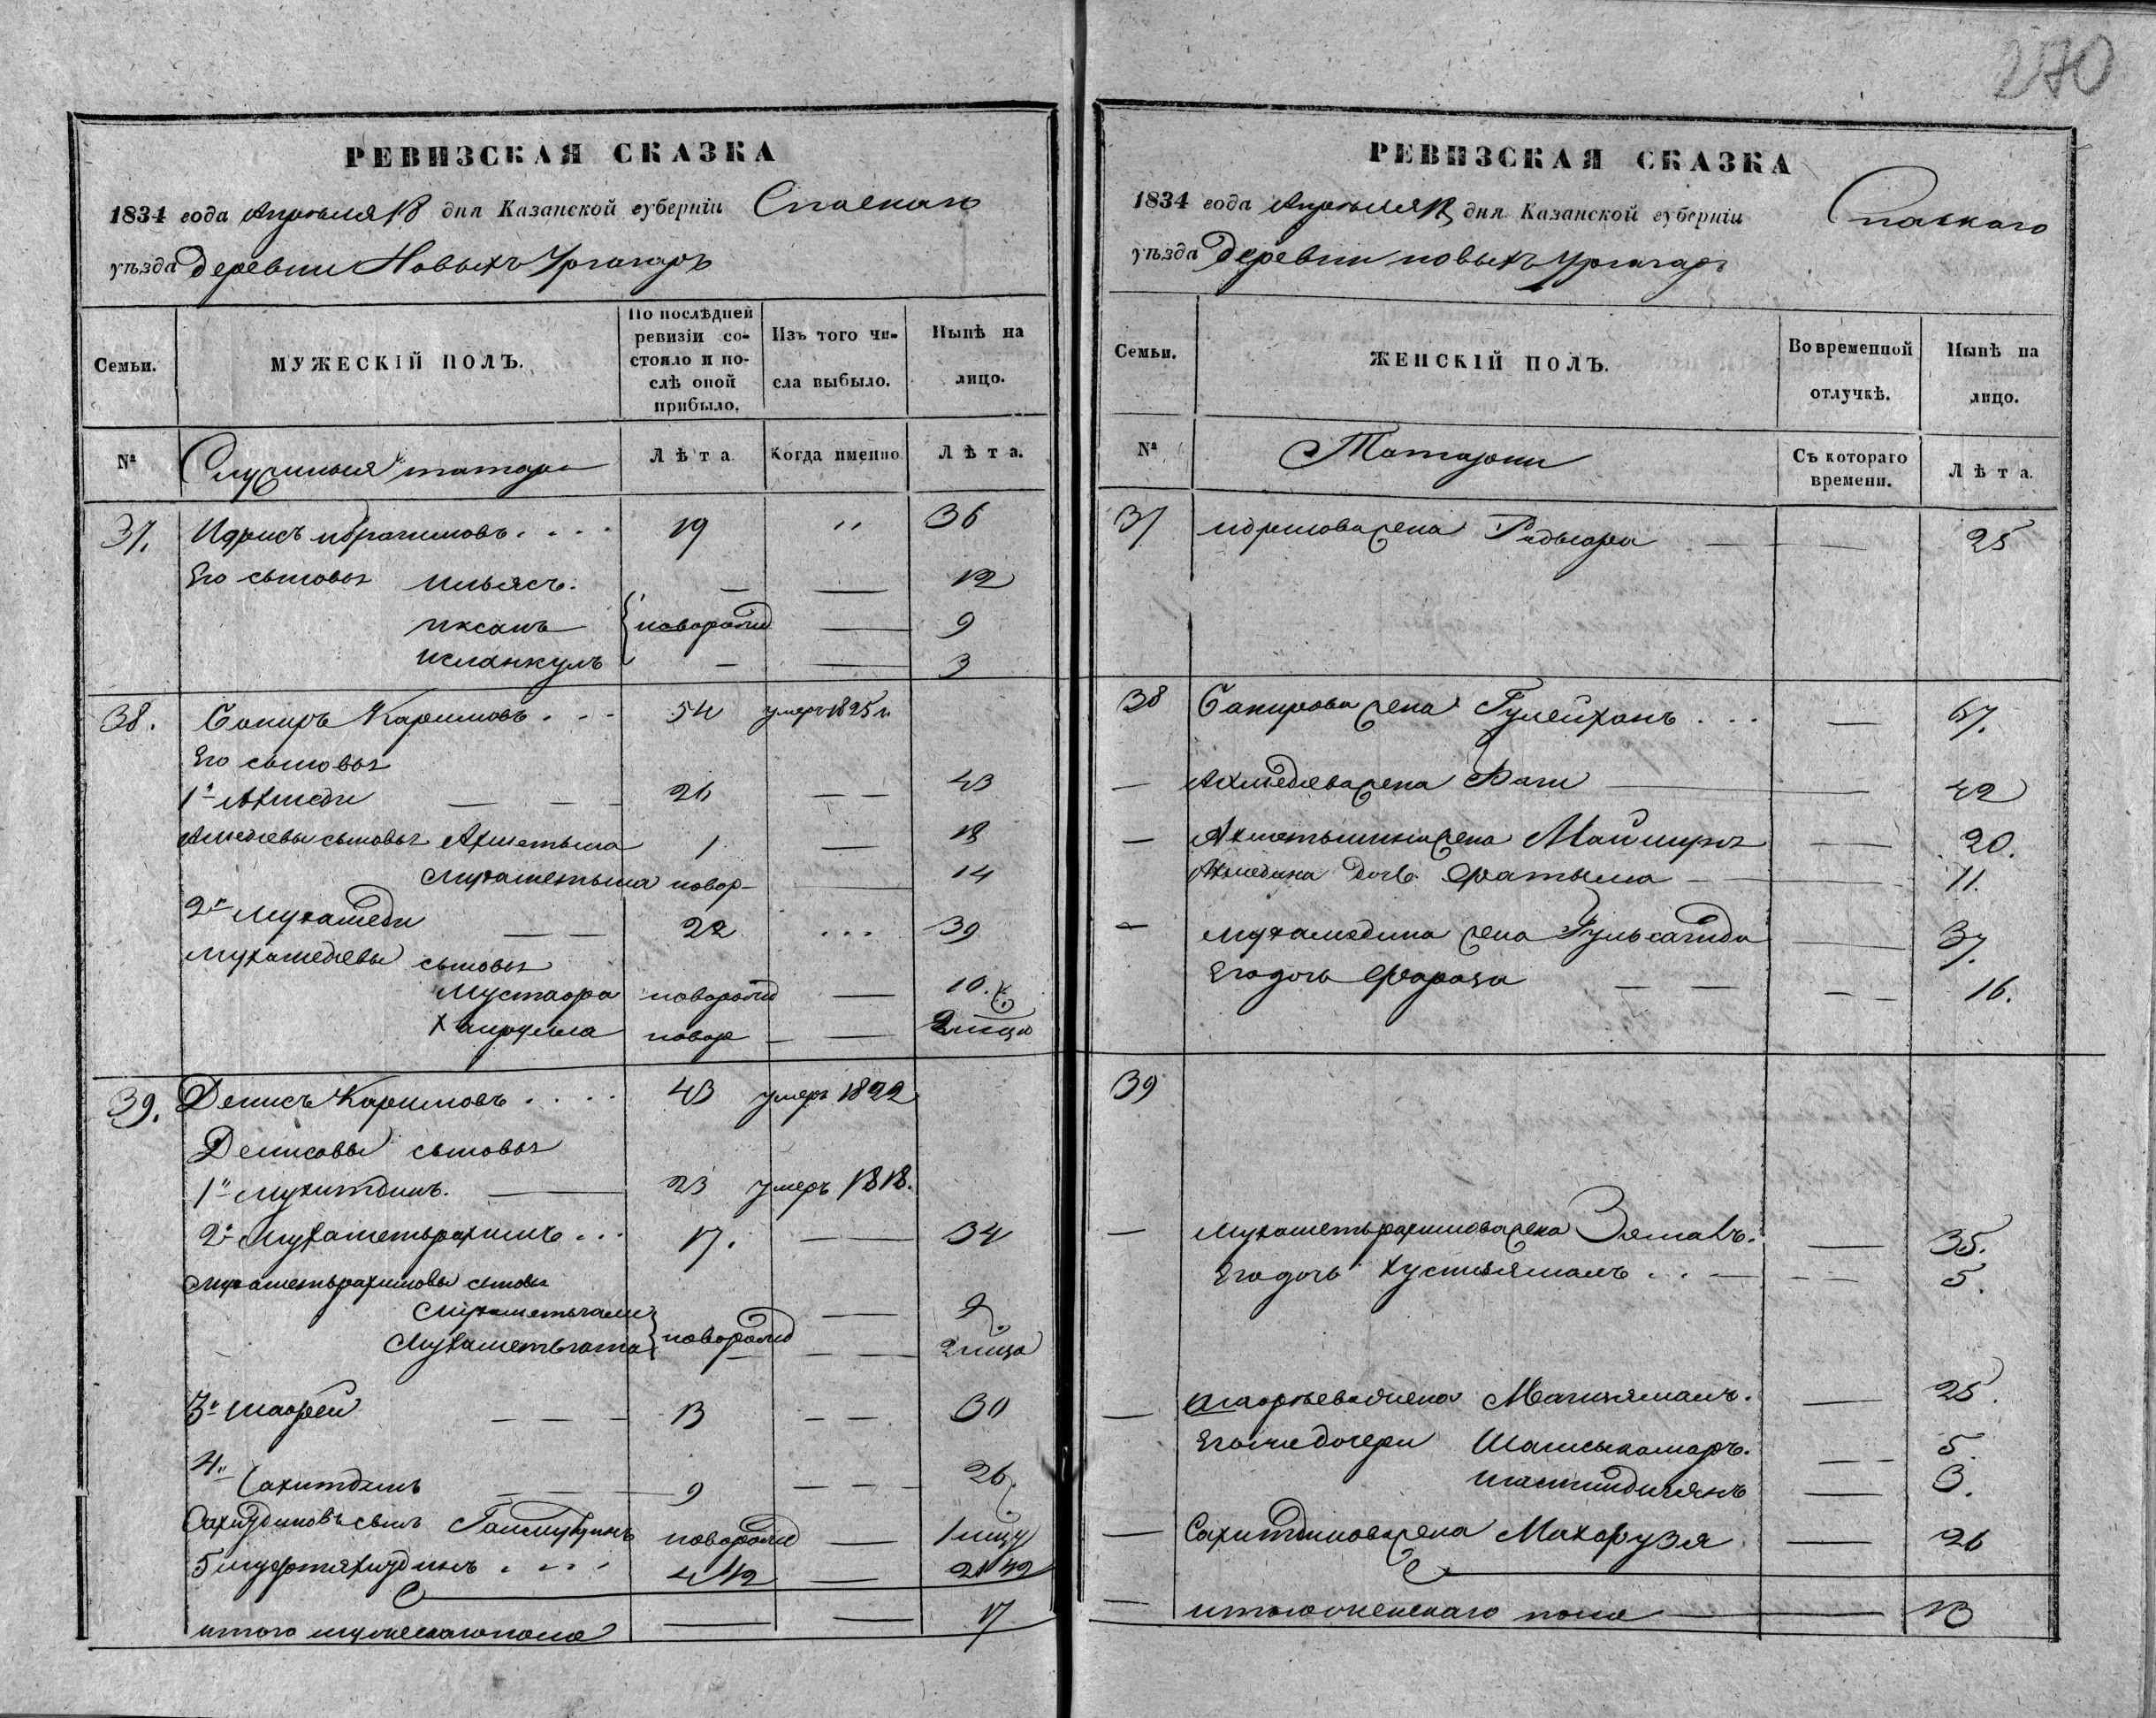 270
РЕВИЗСКАЯ СКАЗКА
1834 года Апреля 18 дня Казанской губернiи Спаскаго
уѣзда деревни Новыхъ Ургагаръ
Семьи. МУЖЕСКIЙ ПОЛЪ. По послѣдней ревизiи состояло и послѣ оной прибыло. Изъ того числа выбыло. Нынѣ на лицо.
№ Служилыя татары Лѣта Когда именно. Лѣта.
37. Идрисъ ибрагимовъ 19 " 36
Его сыновья Ильясъ. — — 12
иксанъ новорожд — 9
Исланкулъ — — 3
38. Бакиръ Каримовъ 54 умеръ 1825 г.
Его сыновья
1й Ахмеди 26 — 43
Ахмедіевы сыновья Ахметьша 1 — 18
Мухаметьша новор — 14
2й Мухамеди 22 39
Мухамедіевы сыновья
Мустафа новорожд — 10.
Хайрулла новор —
39. Денисъ Каримовъ 43 умеръ 1822
Денисовы сыновья
1й Мухитдинъ. — 23 умеръ 1818.
2й Мухаметьрахимъ 17. — 34
Мухаметьрахимовы сыновья
Мухаметьгали новорожд — 9
Мухаметьгата —
3й Шафеи — 13 — 30
4й Сахитдинъ — 9 — 26
Сахитдиновъ сынъ новорожд —
5 4 1/2 — 21 1/2
итого мужескаго пола — — 17
РЕВИЗСКАЯ СКАЗКА
1834 года Апреля 18 дня Казанской губернiи Спаскаго
уѣзда Деревни новыхъ Ургагаръ
Семьи. ЖЕНСКIЙ ПОЛЪ. Во временной отлучкѣ. Нынѣ на лицо.
№ Татарки Съ котораго времени. Лѣта.
37 идрисова жена — — 25
38 Бакирова жена Гулейханъ — 67.
— Ахмедіева жена Баги — 42
— Ахметьшина жена — 20.
Ахмедина дочь Фатыма — 11.
— Мухамедина жена Гульсагида — 37.
Его дочь Фараза — 16.
39
— Мухаметьрахимова жена — 35.
Его дочь Хуснизямалъ — 5.
— Шафѣева жена Магизямалъ. — 25.
Его же дочери Шамсыкамаръ. — 5.
— 3.
— Сахитдинова жена Махфузя — 26
— итого женскаго пола — — 13